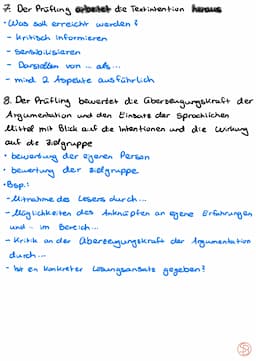 7. Der Prüfling arbeitet die Textintention heraus
• Was soll erreicht werden?
- kritisch informieren
- sensibilisieren
- Darstellen von ... als ...
- mind. 2 Aspekte ausführlich
8. Der Prüfling bewertet die Überzeugungskraft der
Argumentation und den Einsatz der sprachlichen
Mittel mit Blick auf die Intentionen und die Wirkung
auf die Zielgruppe
• bewertung der eigenen Person
• bewertung der zielgruppe
• Bsp.:
- Mitnahme des Lesers durch...
- Möglichkeiten des Anknüpfen an eigene Erfahrungen
und .. im Bereich...
- Kritik an der Überzeugungskraft der Argumentation
durch...
- Ist ein konkreter Lösungsansatz gegeben?